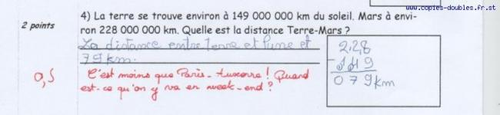 www.copies-doubles.fr.st
2 points
4) La terre se trouve environ à 149 000 000 km du soleil. Mars à envi-
ron 228 000 000 km. Quelle est la distance Terre-Mars ?
La distance entre terre et lune et
79 km.
0,5
C'est moins que Paris-Auxerre ! Quand
est-ce qu'on y va en week-end ?
228
- 149
079 km